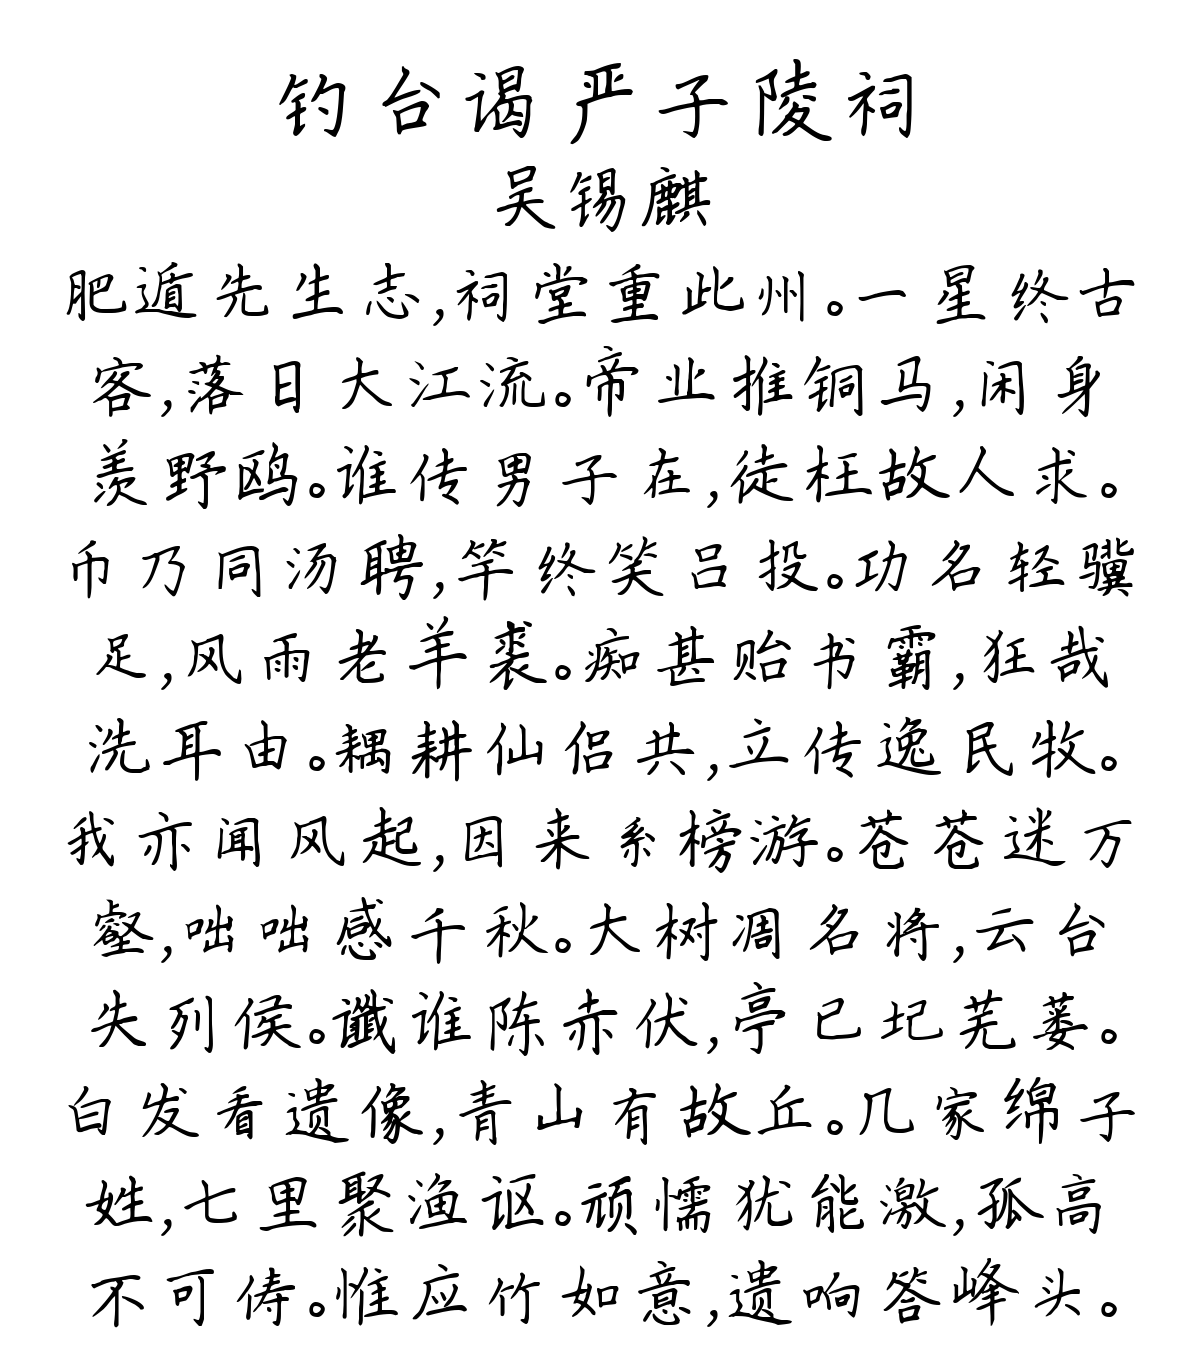 钓台谒严子陵祠
吴锡麒
肥遁先生志,祠堂重此州。一星终古
客,落日大江流。帝业推铜马,闲身
羡野鸥。谁传男子在,徒枉故人求。
币乃同汤聘,竿终笑吕投。功名轻骥
足,风雨老羊裘。痴甚贻书霸,狂哉
洗耳由。耦耕仙侣共,立传逸民收。
我亦闻风起,因来系榜游。苍苍迷万
壑,咄咄感千秋。大树凋名将,云台
失列侯。谶谁陈赤伏,亭已圮芜蒌。
白发看遗像,青山有故丘。几家绵子
姓,七里聚渔讴。顽懦犹能激,孤高
不可俦。惟应竹如意,遗响答峰头。